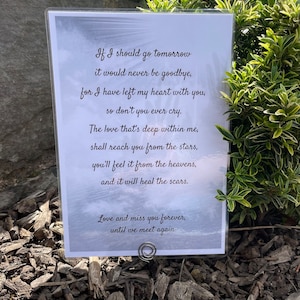 If I should go tomorrow
it would never be goodbye,
for I have left my heart with you,
so don't you ever cry.
The love that's deep within me,
shall reach you from the stars,
you'll feel it from the heavens,
and it will heal the scars.
Love and miss you forever,
until we meet again